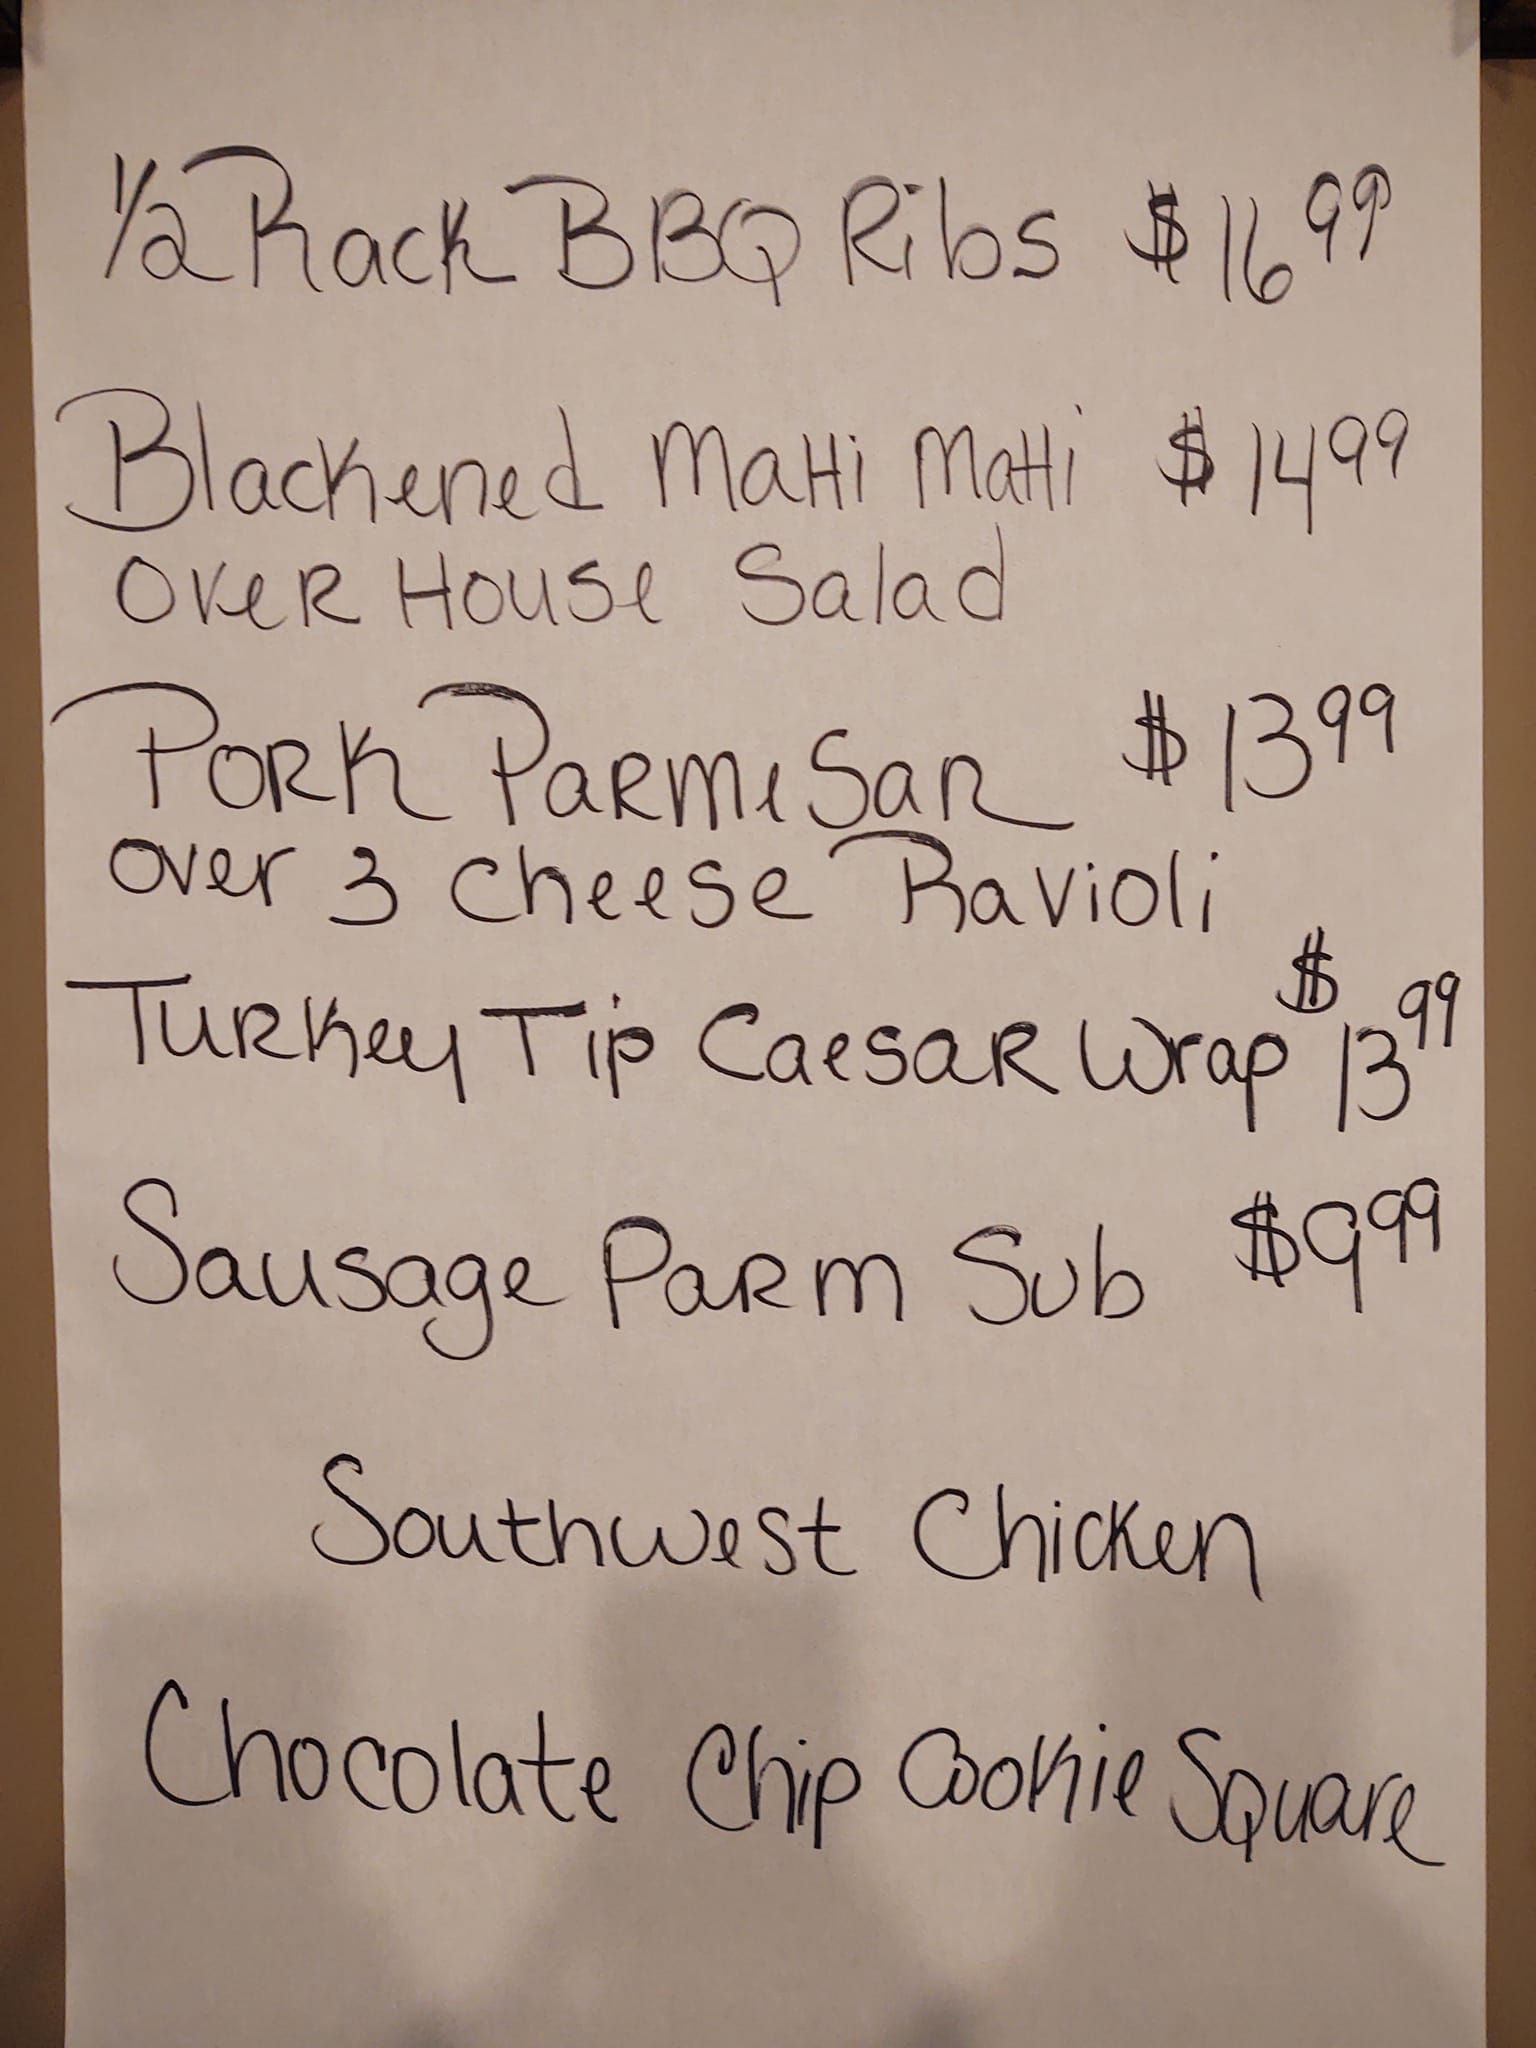 1/2 Rack BBQ Ribs $16.99
Blackened MaHi MaHi $14.99
over House Salad
Pork Parmesan $13.99
over 3 cheese Ravioli
Turkey Tip Caesar Wrap $13.99
Sausage Parm Sub $9.99
Southwest Chicken
Chocolate Chip Cookie Square